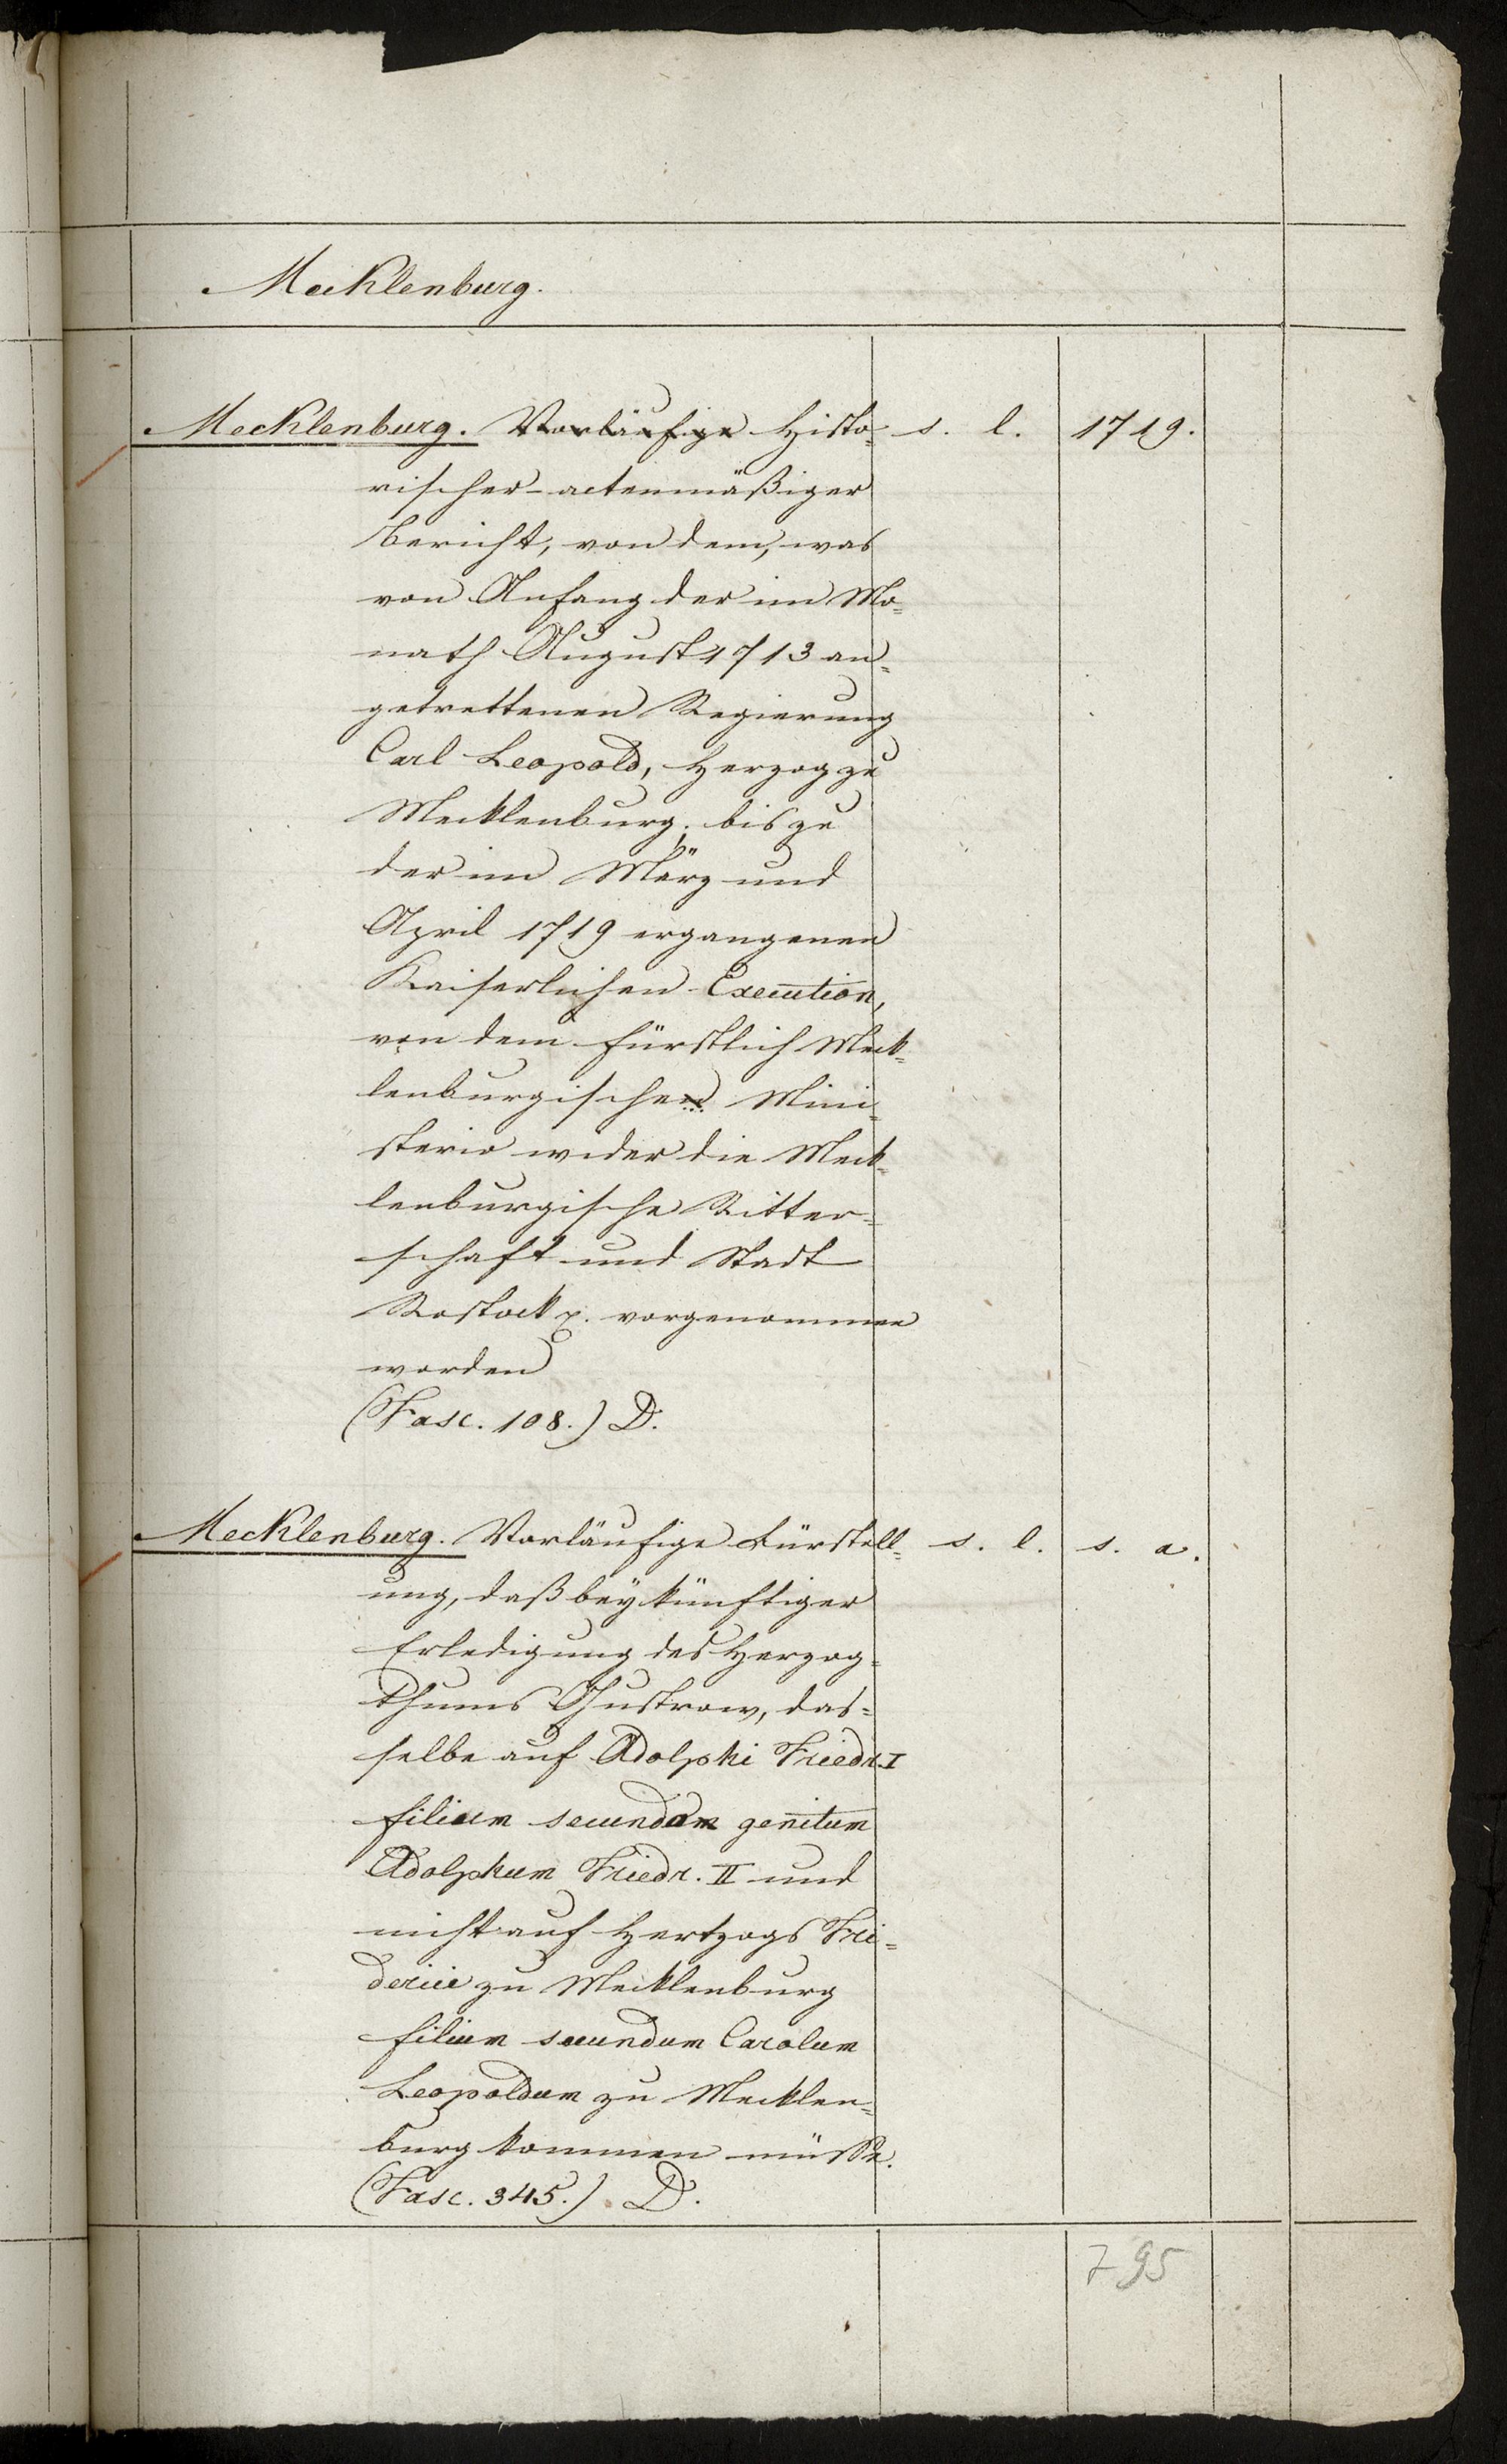 Mecklenburg.
Mecklenburg. Vorläufige Histo= s. l. 1719.
rischer-actenmäßiger
Bericht, von dem, was
von Anfang der im Mo=
nath August 1713 an=
getrettenen Regierung
Carl Leopold, Herzog zu
Mecklenburg, bis zu
der im März und
April 1719 ergangenen
Kaiserlichen Execution,
von dem Fürstlich Meck=
lenburgischen Mini=
sterio wider die Meck=
lenburgische Ritter=
schaft und Stadt
Rostock p. vorgenommen
worden
(Fasc. 108.) D.
Mecklenburg. Vorläufige Fürstell= s. l. s. a.
ung, daß bey künftiger
Erledigung des Herzog=
thums Gustrow, das=
selbe auf Adolphi Friedr. I
filium secundam genitum
Adolphum Friedr. II und
nicht auf Hertzogs Fri=
derici zu Mecklenburg
filium secundum Carolum
Leopoldum zu Mecklen=
burg kommen müsse.
(Fasc. 345.) D.
795